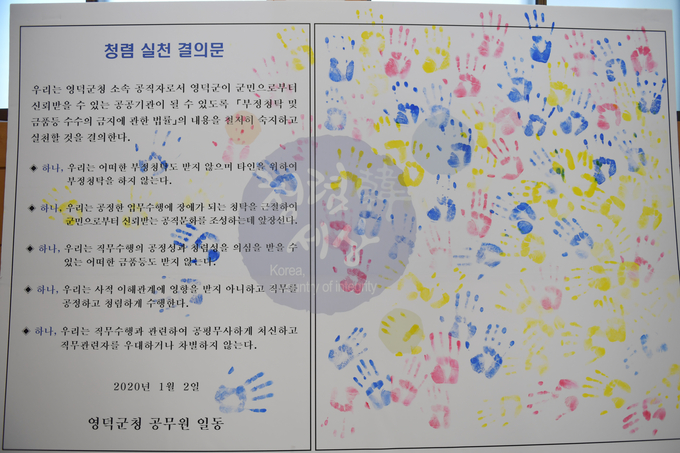 청렴 실천 결의문
우리는 영덕군청 소속 공직자로서 영덕군이 군민으로부터
신뢰받을 수 있는 공공기관이 될 수 있도록 「부정청탁 및
금품등 수수의 금지에 관한 법률」의 내용을 철저히 숙지하고
실천할 것을 결의한다.
◈ 하나, 우리는 어떠한 부정청탁도 받지 않으며 타인을 위하여
부정청탁을 하지 않는다.
◈ 하나, 우리는 공정한 업무수행에 장애가 되는 청탁을 근절하여
군민으로부터 신뢰받는 공직문화를 조성하는데 앞장선다.
◈ 하나, 우리는 직무수행의 공정성과 청렴성을 의심을 받을 수
있는 어떠한 금품등도 받지 않는다.
◈ 하나, 우리는 사적 이해관계에 영향을 받지 아니하고 직무를
공정하고 청렴하게 수행한다.
◈ 하나, 우리는 직무수행과 관련하여 공평무사하게 처신하고
직무관련자를 우대하거나 차별하지 않는다.
2020년 1월 2일
영덕군청 공무원 일동
韓
Korea,
country of integrity